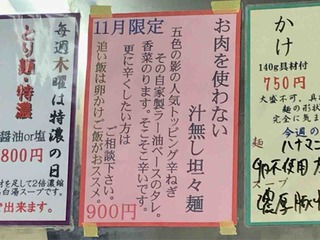 かけ
140g具材付
750円
大盛不可、具
麺の形状
完全に気ま
今週の
ハナマ
卵不使用
スープ
濃厚豚
お肉を使わない
汁無し坦々麺
11月限定
五色の影の人気トッピング辛ねぎ
その自家製ラー油ベースのタレ。
香菜のります。そこそこ辛いです。
更に辛くしたい方は
ご相談下さい。
追い飯は卵かけご飯がおススメ。
900円
毎週木曜は特濃の日
とり麺・特濃
醤油or塩
800円
材を足して2倍濃縮
鶏白湯スープです。
出来ます。